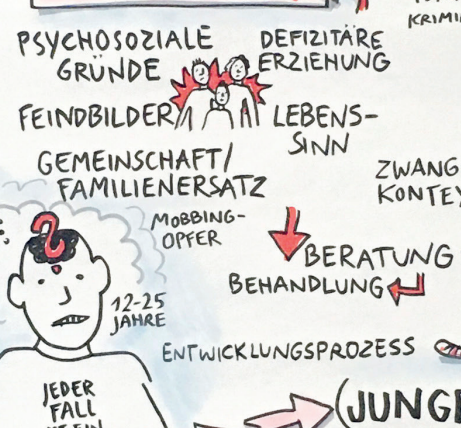 PSYCHOSOZIALE
GRÜNDE
DEFIZITÄRE
ERZIEHUNG
FEINDBILDER
LEBENS-
SINN
GEMEINSCHAFT/
FAMILIENERSATZ
ZWANG
MOBBING-
OPFER
BERATUNG
BEHANDLUNG
12-25
JAHRE
ENTWICKLUNGSPROZESS
JEDER
FALL
(JUNG